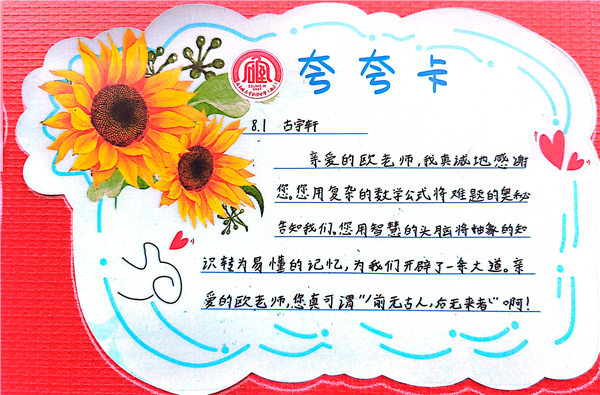 夸夸卡
8.1 古宇轩
亲爱的欧老师,我真诚地感谢
您。您用复杂的数学公式将难题的奥秘
告知我们。您用智慧的头脑将抽象的知
识转为易懂的记忆,为我们开辟了一条大道。亲
爱的欧老师,您真可谓“前无古人,后无来者”啊!